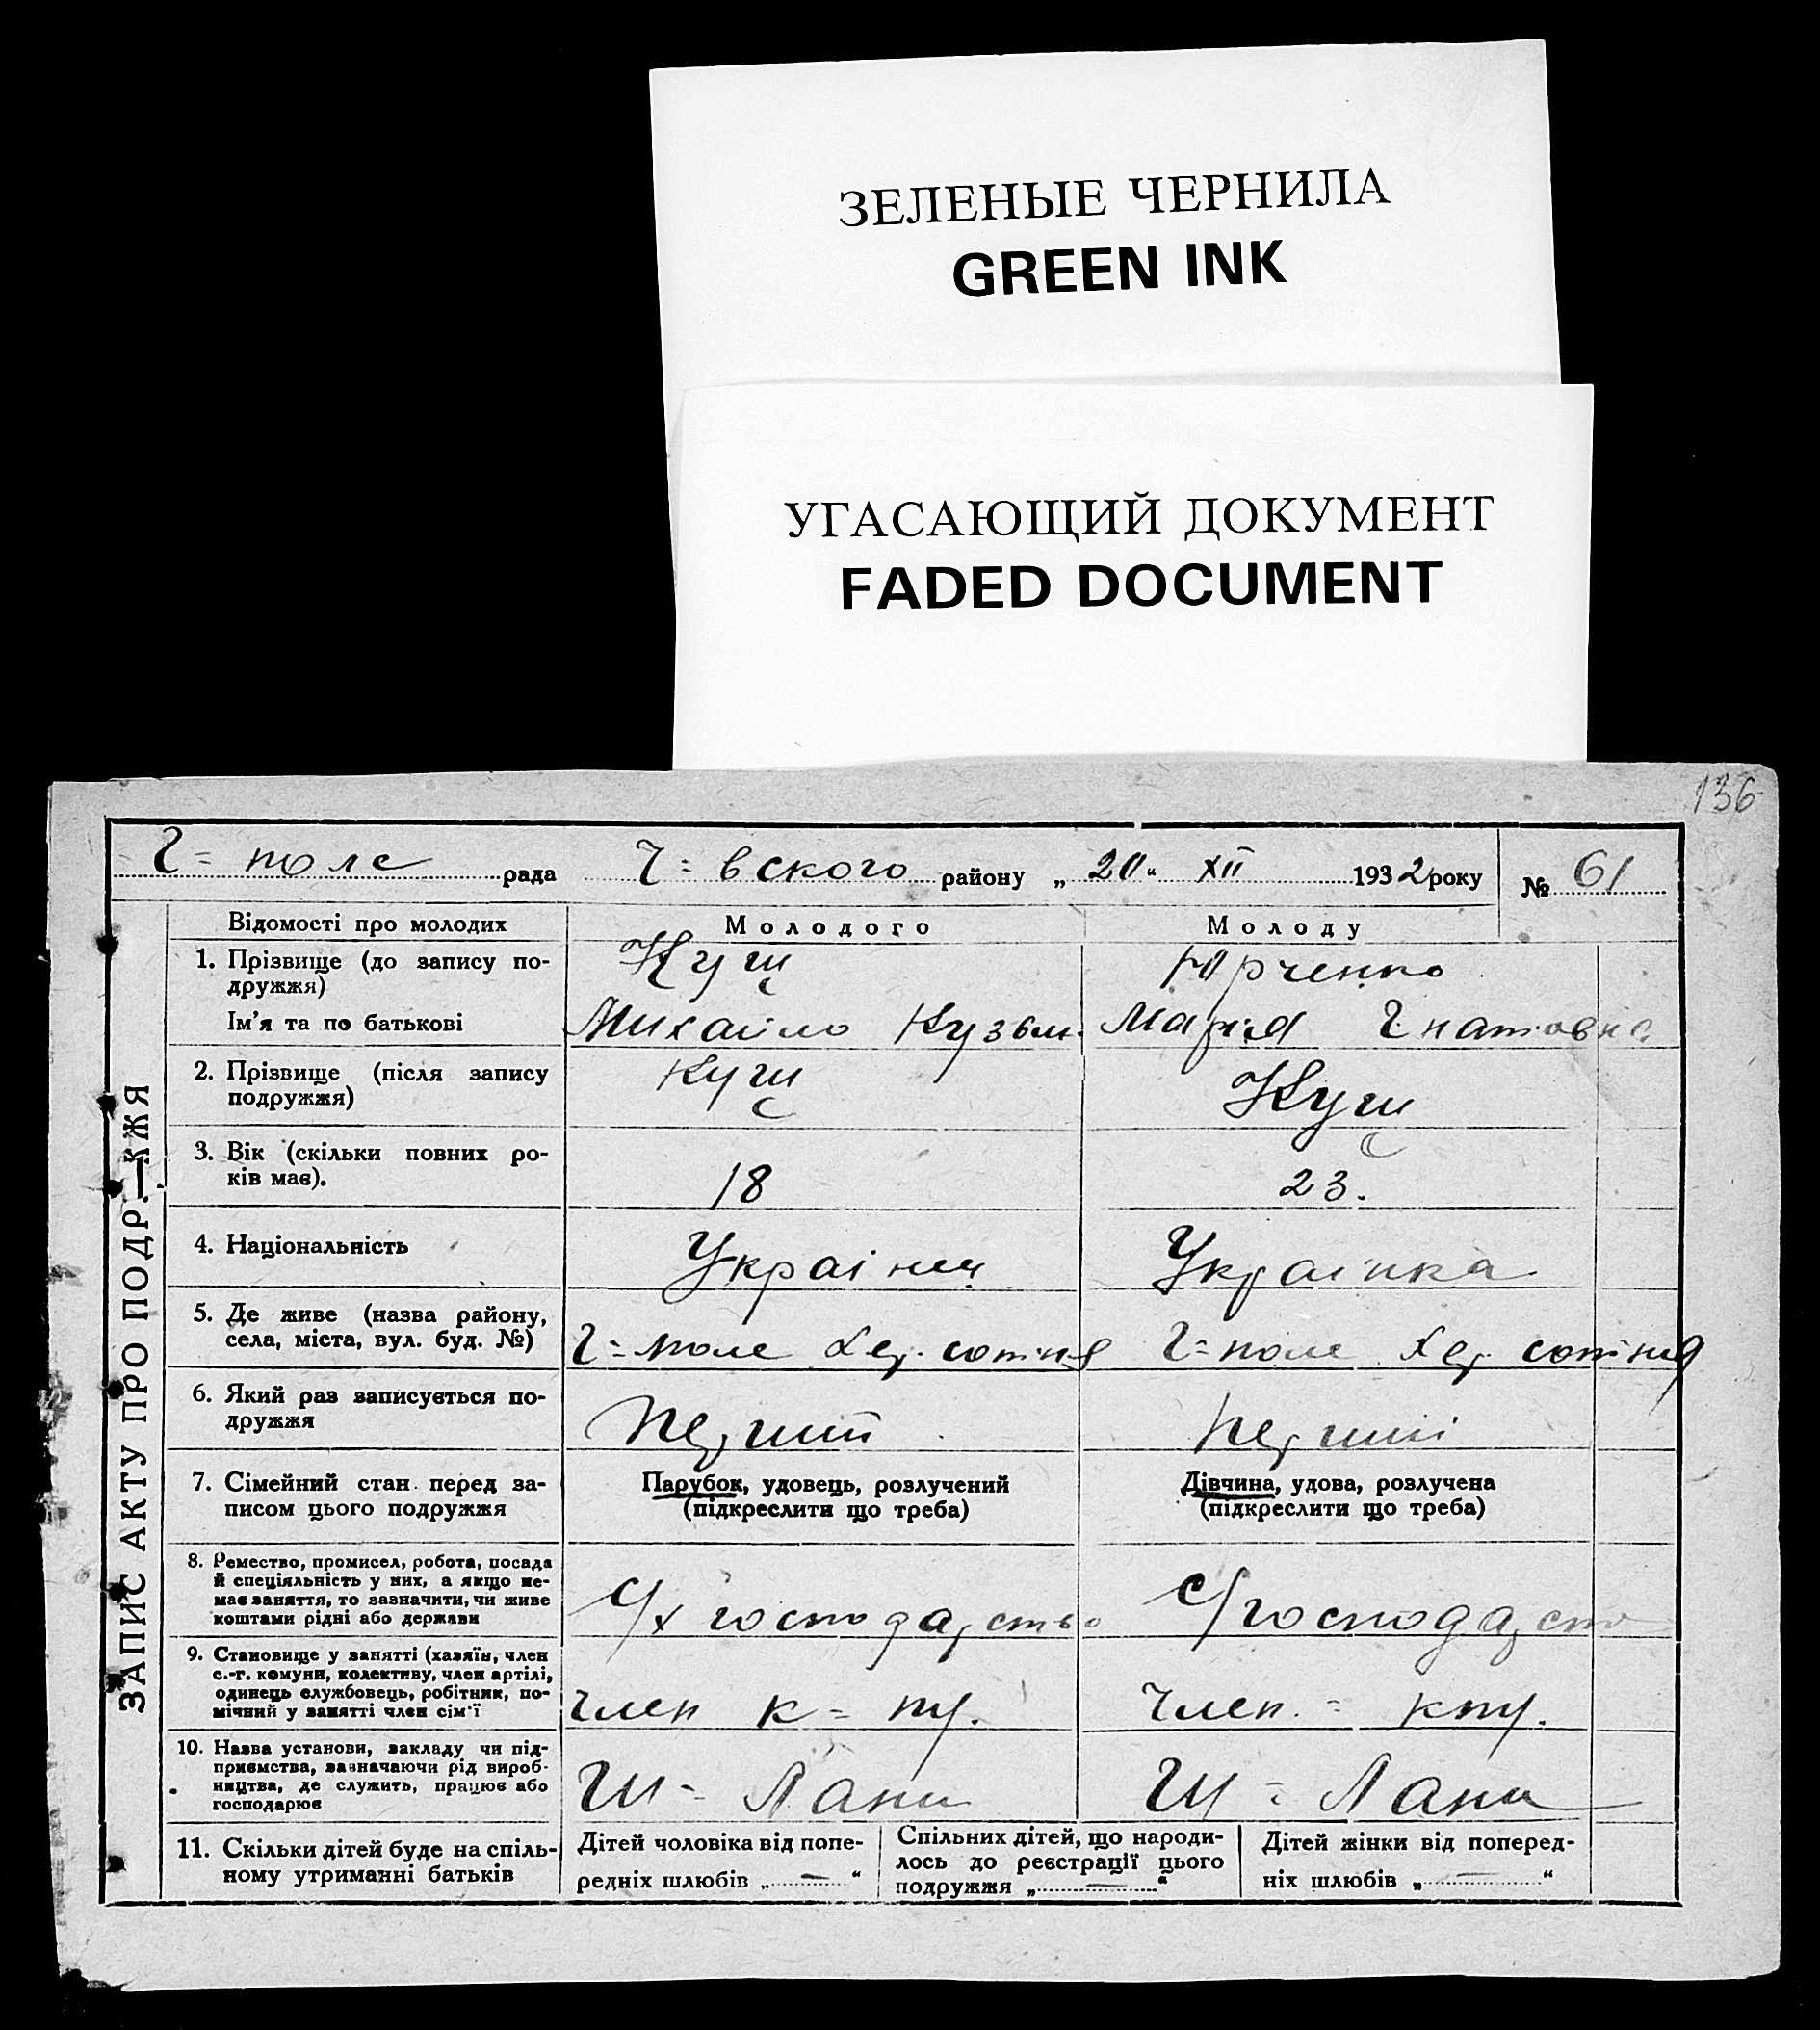 ЗЕЛЕНЫЕ ЧЕРНИЛА
GREEN INK
УГАСАЮЩИЙ ДОКУМЕНТ
FADED DOCUMENT
136
Г= поле рада Ч=вского району „ 20 “ XII 1932 року № 61
ЗАПИС АКТУ ПРО ПОДР.—ЖЖЯ
Відомості про молодих Молодого Молоду
1. Прізвище (до запису по-
дружжя) Кущ Юрченко
Ім'я та по батькові Михайло Кузьм. Марія Гнатовна
2. Прізвище (після запису
подружжя) Кущ Кущ
3. Вік (скільки повних ро-
ків має). 18 23.
4. Національність Українец Українка
5. Де живе (назва району,
села, міста, вул. буд. №) Г=поле Хер. сотня Г=поле Хер. сотня
6. Який раз записується по-
дружжя Перший Перший
7. Сімейний стан перед за-
писом цього подружжя
Парубок, удовець, розлучений
(підкреслити що треба)
Дівчина, удова, розлучена
(підкреслити що треба)
8. Ремество, промисел, робота, посада
й спеціяльність у них, а якщо не-
має заняття, то зазначити, чи живе
коштами рідні або держави
С/х господарство С/господарсто
9. Становище у занятті (хазяїн, член
с.-г. комуни, колективу, член артілі,
одинець службовець, робітник, по-
мічний у занятті член сім'ї
член к=пу. член = кпу.
10. Назва установи, закладу чи під-
приємства, зазначаючи рід вироб-
ництва, де служить, працює або
господарює
Ш= Лани Ш= Лани
11. Скільки дітей буде на спіль-
ному утриманні батьків
Дітей чоловіка від попе-
редніх шлюбів „ — “
Спільних дітей, що народи-
лось до реєстрації цього
подружжя „ — “
Дітей жінки від поперед-
ніх шлюбів „ — “